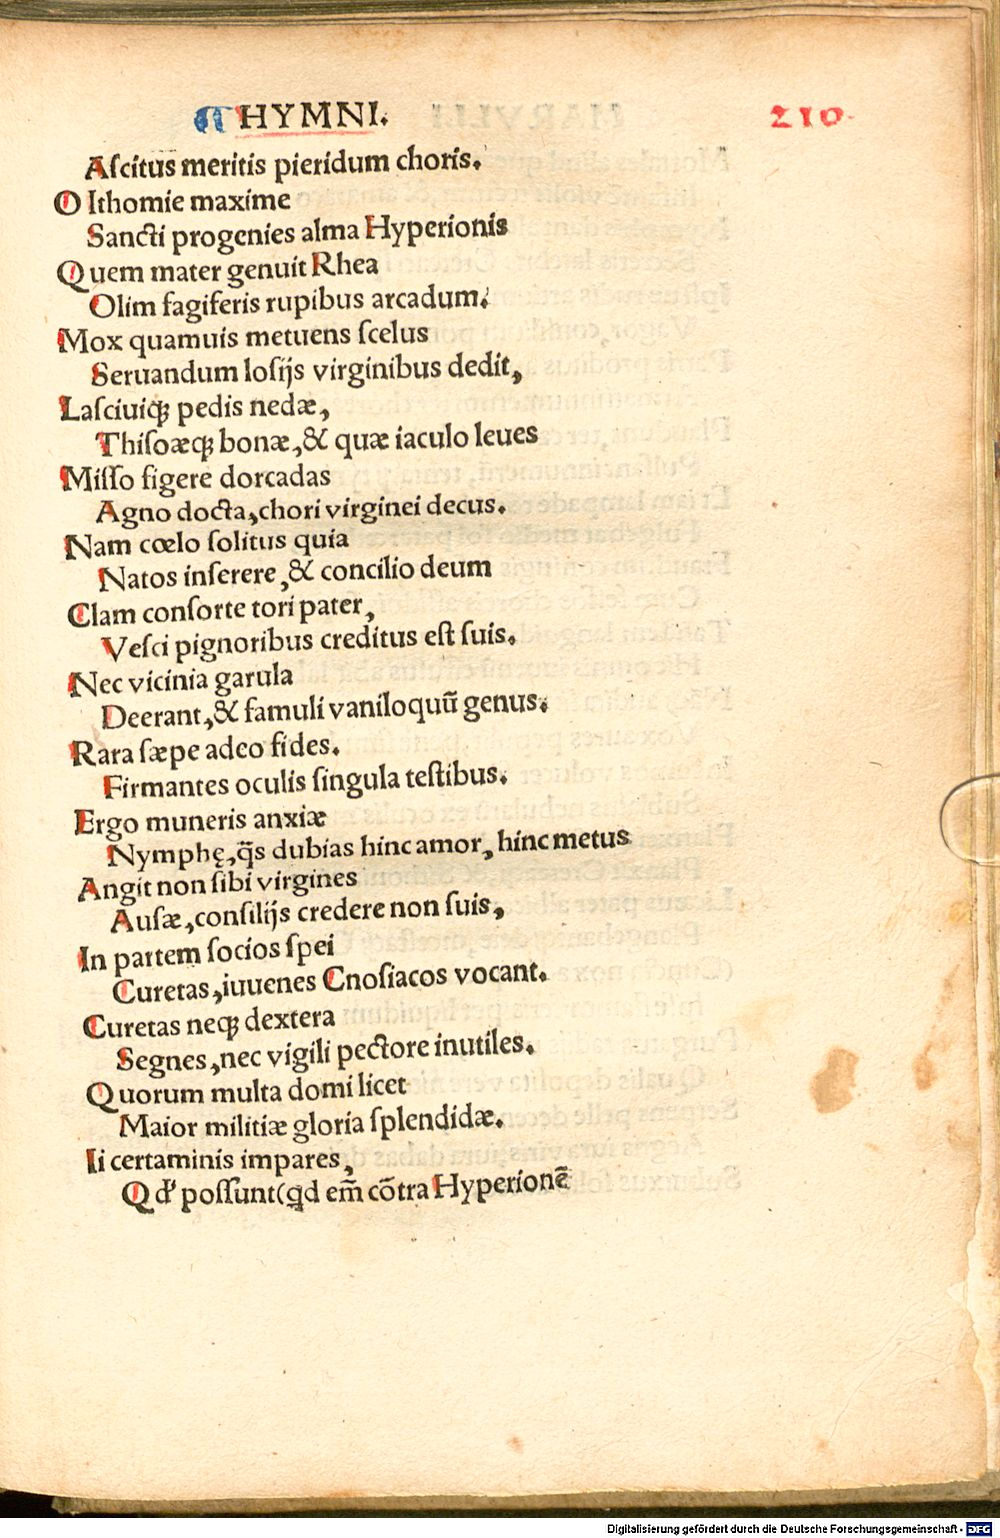 HYMNI. 210.
Aſcitus meritis pieridum choris.
O Ithomie maxime
Sancti progenies alma Hyperionis
Quem mater genuit Rhea
Olim fagiferis rupibus arcadum.
Mox quamuis metuens ſcelus
Seruandum loſijs virginibus dedit,
Laſciuiqꝫ pedis nedæ,
Thiſoæqꝫ bonæ,& quæ iaculo leues
Miſſo figere dorcadas
Agno docta,chori virginei decus.
Nam cœlo ſolitus quia
Natos inſerere,& concilio deum
Clam conſorte tori pater,
Veſci pignoribus creditus eſt ſuis.
Nec vicinia garula
Deerant,& famuli vaniloquū genus.
Rara ſæpe adeo fides.
Firmantes oculis ſingula teſtibus.
Ergo muneris anxiæ
Nymphę,q̄s dubias hinc amor, hinc metus
Angit non ſibi virgines
Auſæ,conſilijs credere non ſuis,
In partem ſocios ſpei
Curetas,iuuenes Cnoſiacos vocant.
Curetas neqꝫ dextera
Segnes,nec vigili pectore inutiles.
Quorum multa domi licet
Maior militiæ gloria ſplendidæ.
Ii certaminis impares,
Qd' poſſunt(qd em̄ cōtra Hyperionē
Digitalisierung gefördert durch die Deutsche Forschungsgemeinschaft - DFG